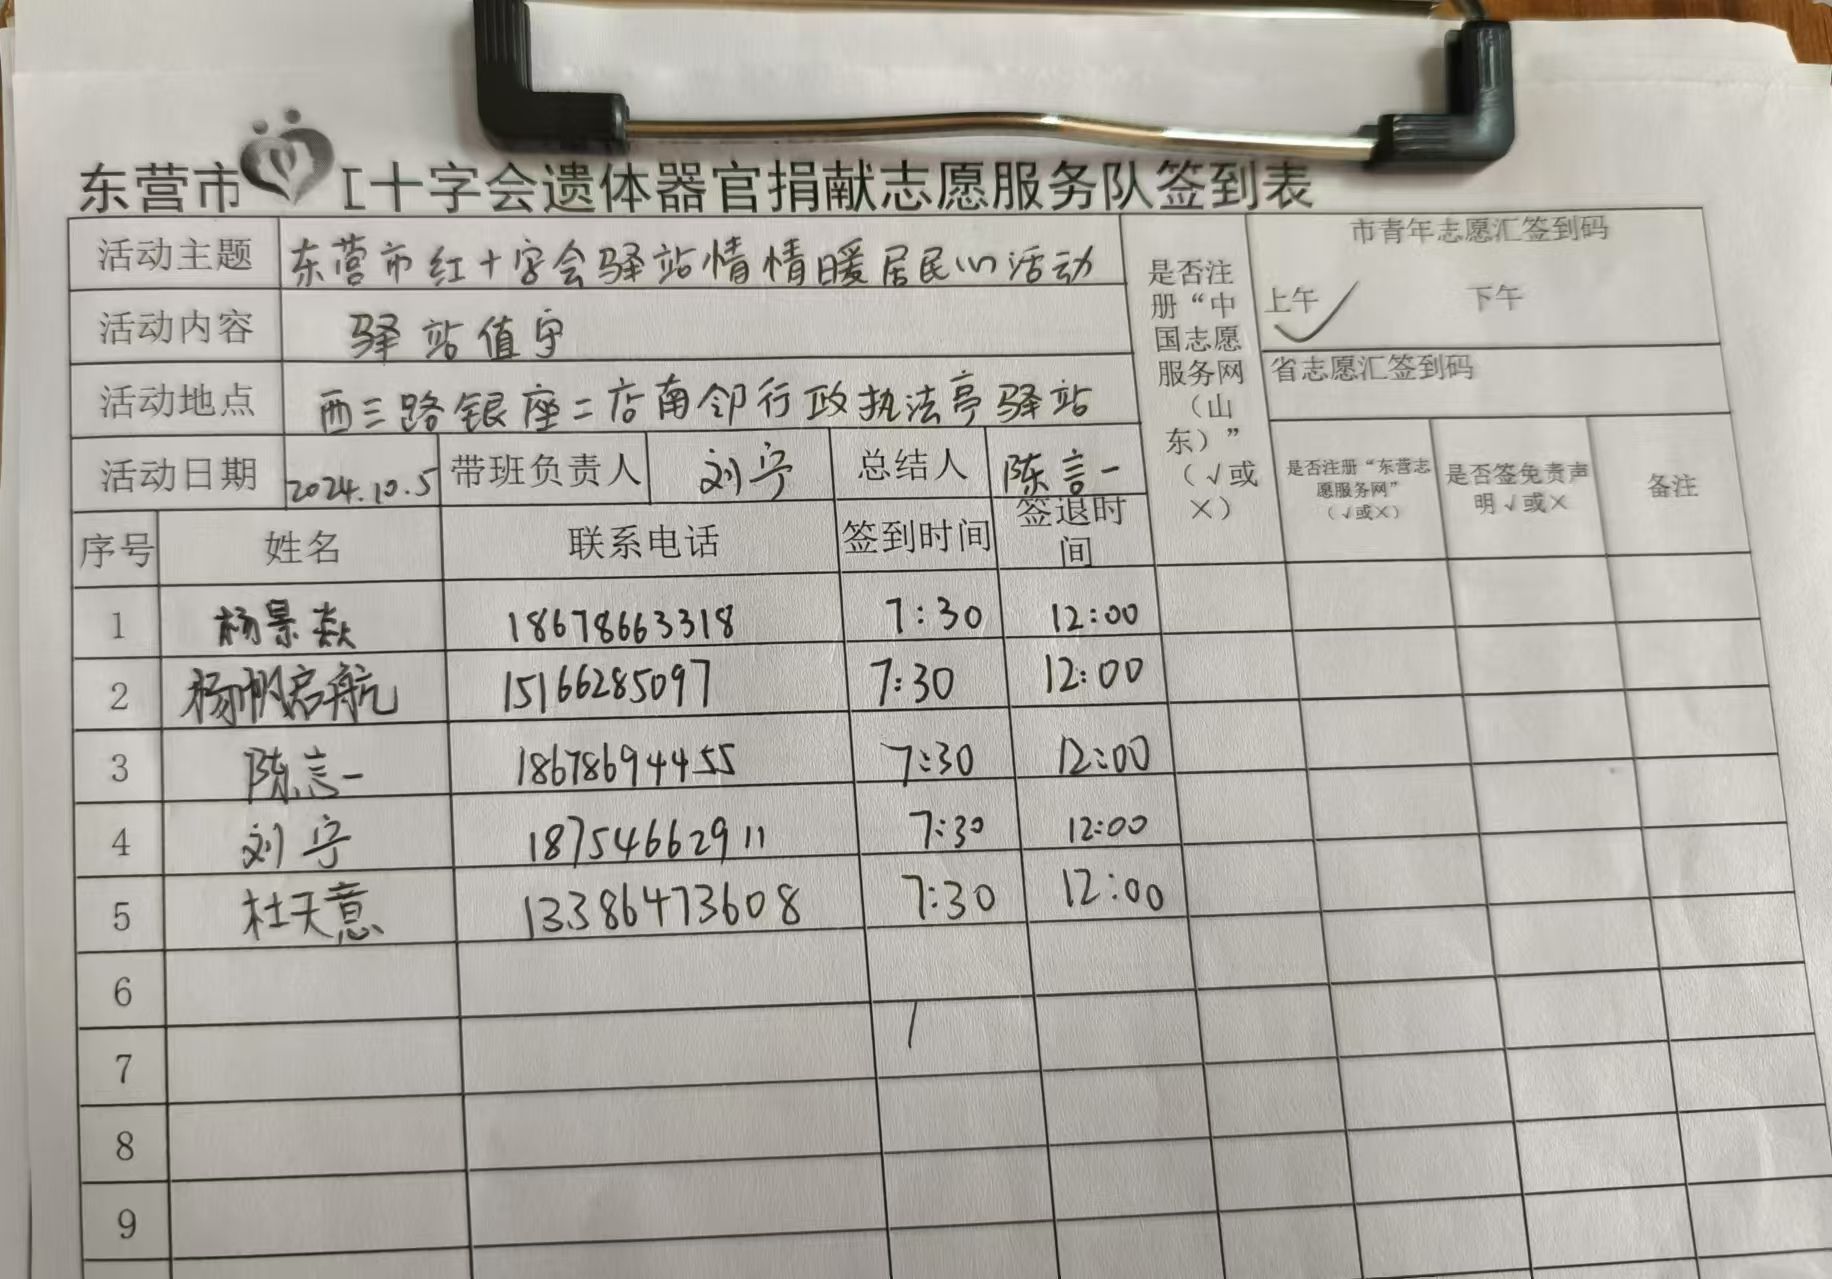 东营市 工十字会遗体器官捐献志愿服务队签到表
活动主题 东营市红十字会驿站情情暖居民心活动
活动内容 驿站值守
活动地点 西三路银座二店南邻行政执法亭驿站
活动日期 2024.10.5 带班负责人 刘宁 总结人 陈言一
是否注
册“中
国志愿
服务网
（山
东）”
（√或
×）
市青年志愿汇签到码
上午 √ 下午
省志愿汇签到码
是否注册“东营志
愿服务网”
（√或×）
是否签免责声
明√或×
备注
序号 姓名 联系电话 签到时间 签退时
间
1 杨景 18678663318 7:30 12:00
2 杨帆启航 15166285097 7:30 12:00
3 陈言一 18678694455 7:30 12:00
4 刘宁 18754662911 7:30 12:00
5 杜天意 13386473608 7:30 12:00
6
7
8
9